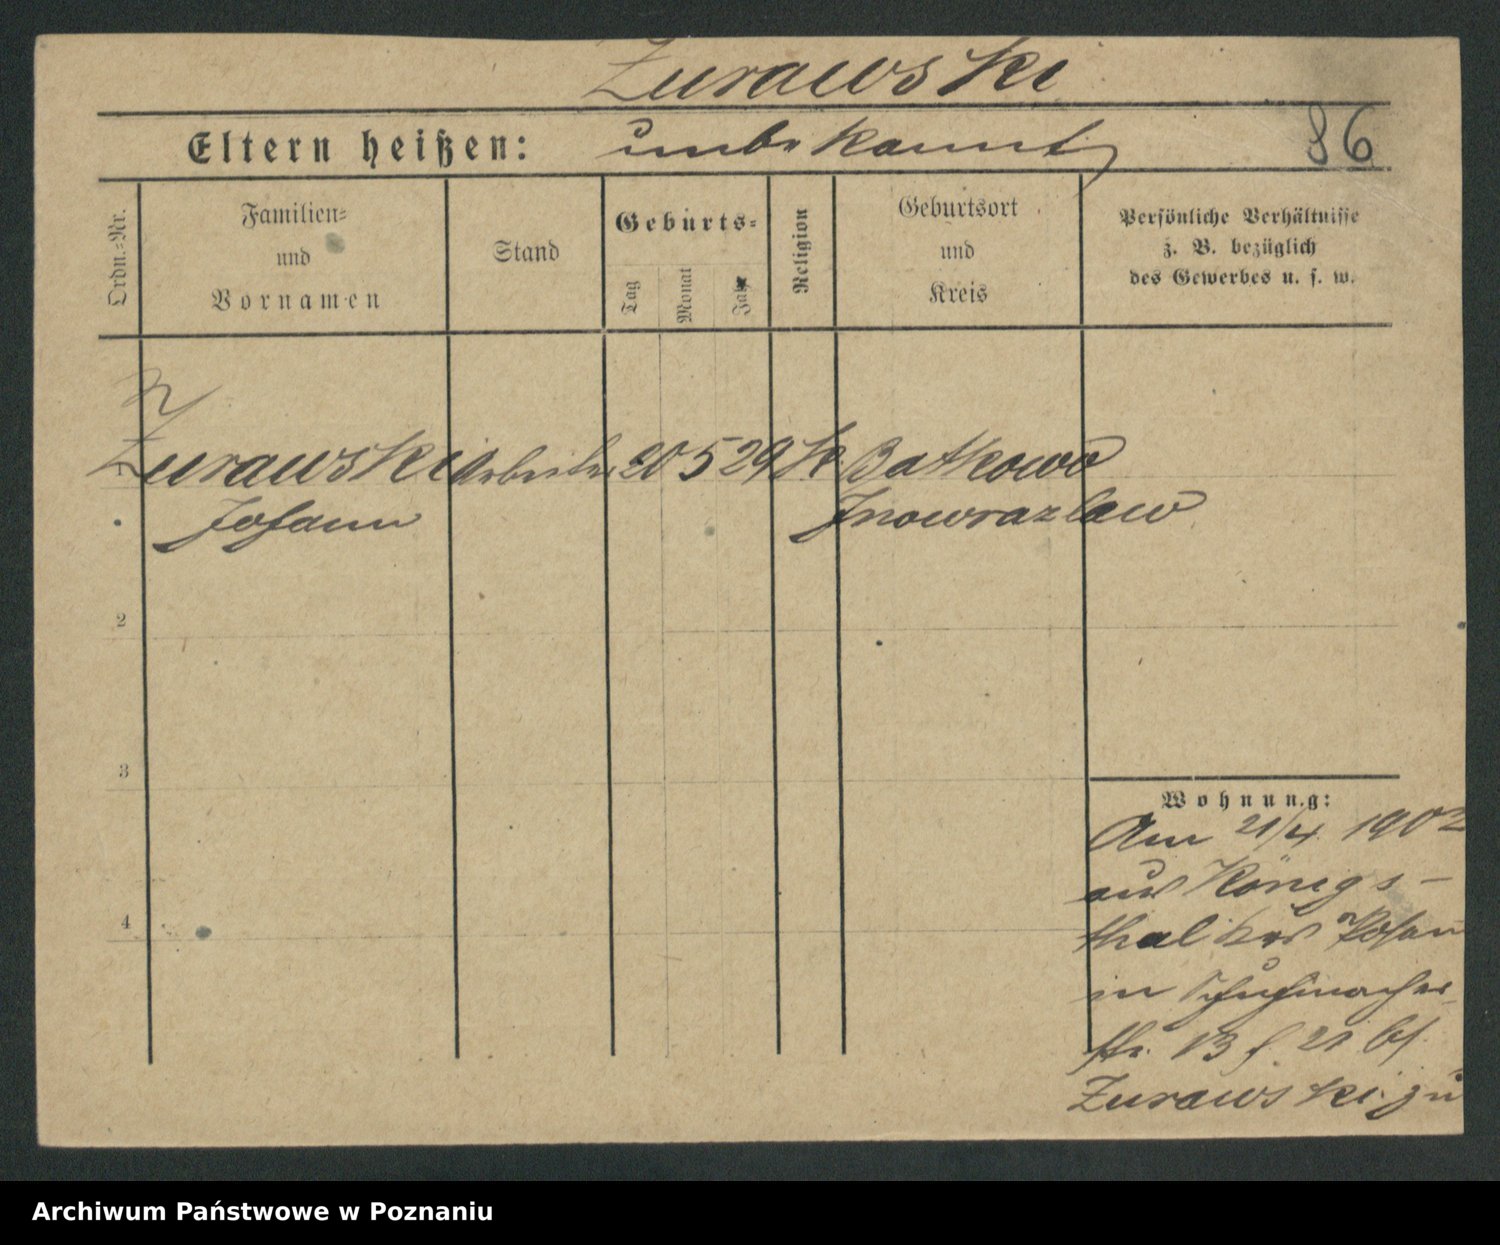 Zurawski
Eltern heißen: unbekannt
86
Ordn.=Nr.
Familien=
und
Vornamen
Stand
Geburts=
Tag
Monat
Jahr
Religion
Geburtsort
und
Kreis
Persönliche Verhältnisse
z. B. bezüglich
des Gewerbes u. s. w.
1
Zurawski Arbeiter 20 5 29 k. Batkowo
Johann Inowrazlaw
2
3
4
Wohnung:
Am 21/4. 1902
aus Königs-
thal Posen
in Schuhmacher-
str. 13 21 bf
Zurawski zu
Archiwum Państwowe w Poznaniu